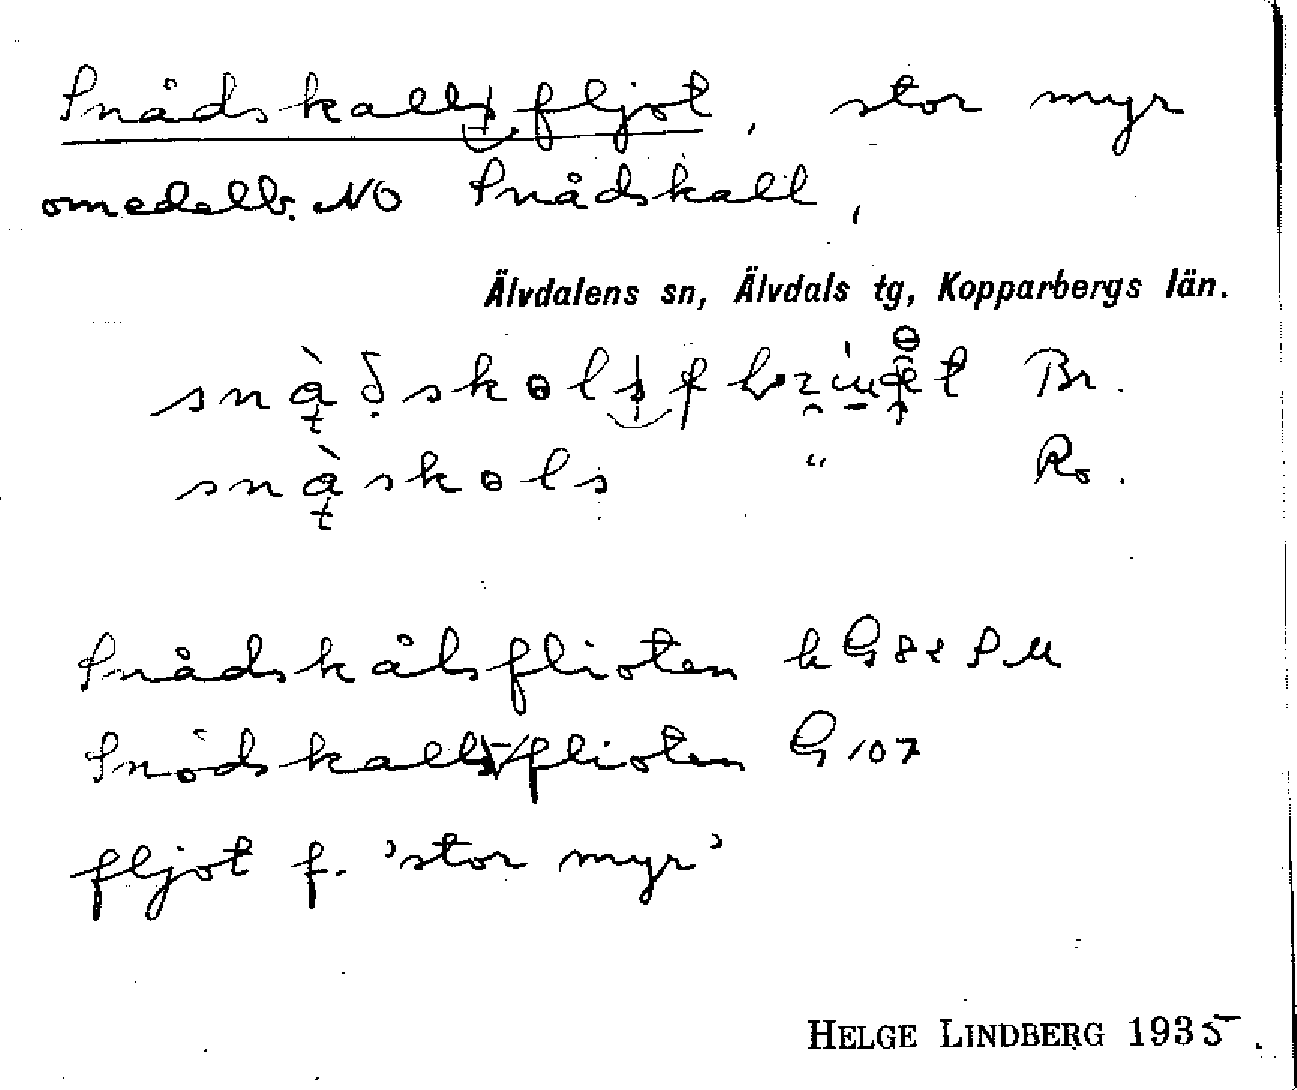 Snådskallsfljot, stor myr
omedelb. NO Snådskall,
Älvdalens sn, Älvdals tg, Kopparbergs län.
Br.
snàskɵls " Ro.
Snådskålsflioten k G82 SM
Snödskallsflioten G 107
fljot f. 'stor myr'
HELGE LINDBERG 1935.